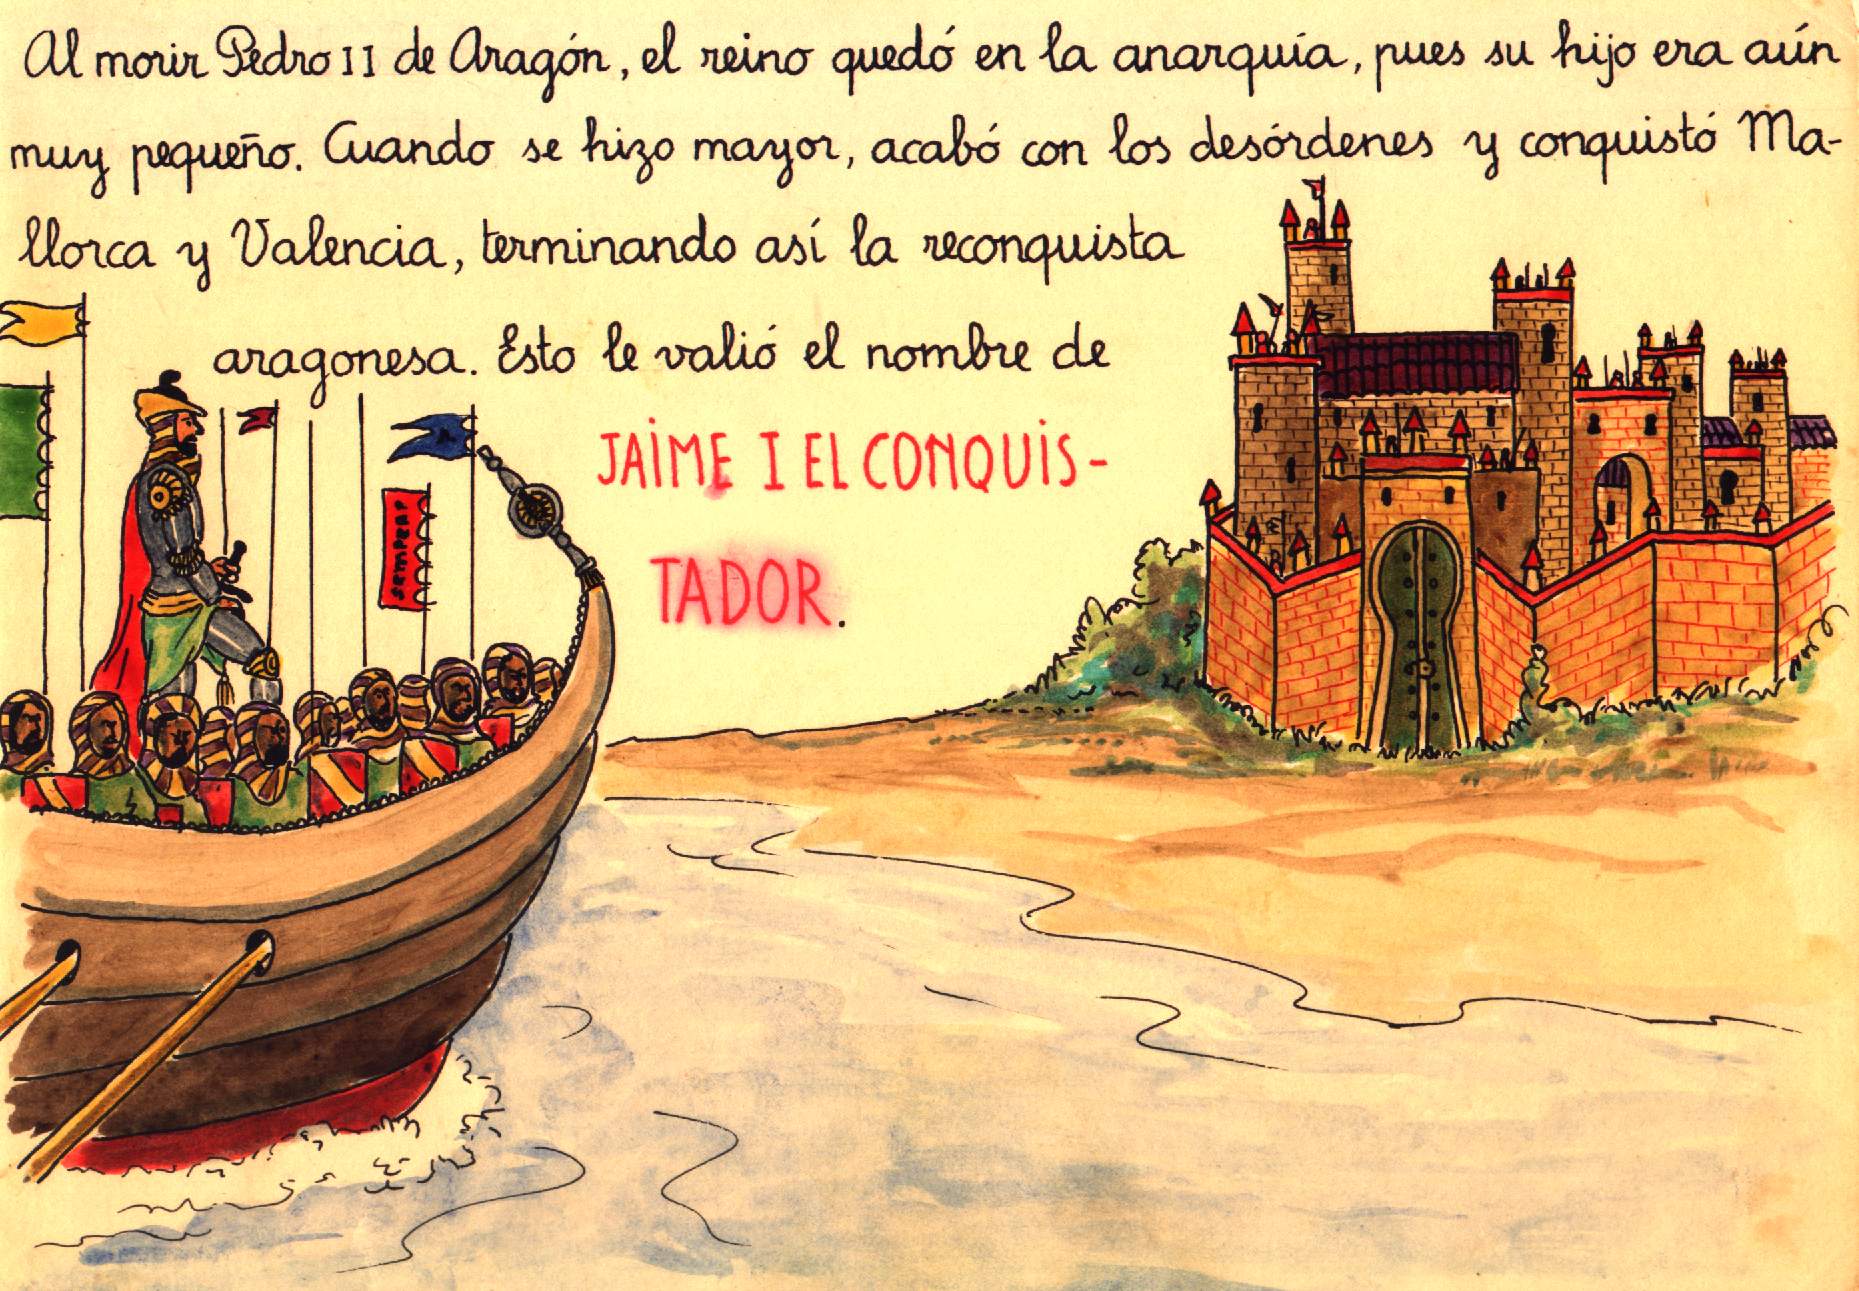 Al morir Pedro II de Aragón, el reino quedó en la anarquía, pues su hijo era aún
muy pequeño. Cuando se hizo mayor, acabó con los desórdenes y conquistó Ma-
llorca y Valencia, terminando así la reconquista
aragonesa. Esto le valió el nombre de
JAIME I EL CONQUIS-
TADOR.